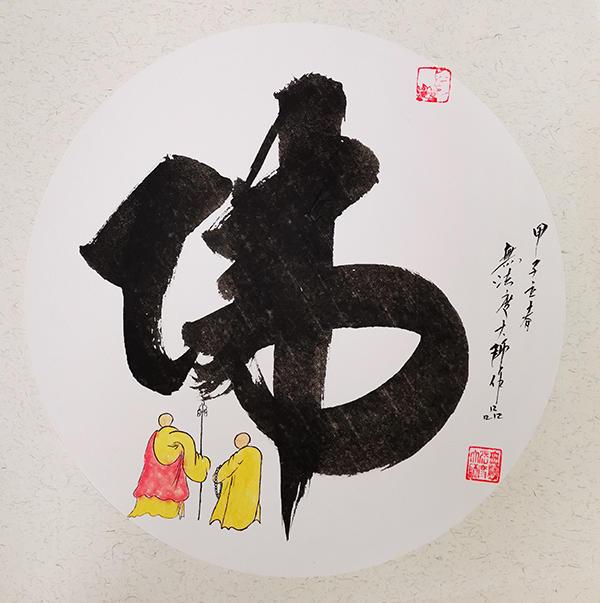 佛
甲子立春
無法度大師作品